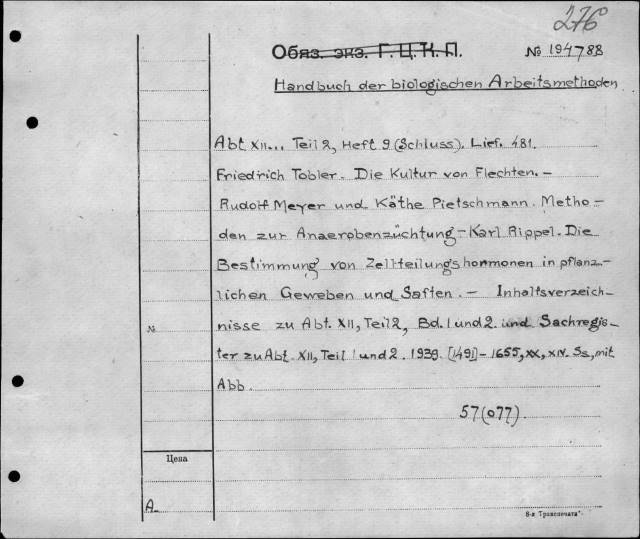 276
Обяз. экз. Г.Ц.К.П. № 194788
Handbuch der biologischen Arbeitsmethoden
Abt XII... Teil 2, Heft 9 (Schluss). Lief. 481.
Friedrich Tobler. Die Kultur von Flechten. —
Rudolf Meyer und Käthe Pietschmann. Metho-
den zur Anaerobenzüchtung — Karl Rippel. Die
Bestimmung von Zellteilungshormonen in pflanz-
lichen Geweben und Saften. — Inhaltsverzeich-
nisse zu Abt. XII, Teil 2, Bd. 1 und 2. und Sachregis-
№
ter zu Abt. XII, Teil 1 und 2. 1939. [1491] — 1655, XX, XIV. Ss, mit
Abb.
57(077).
Цена
А.
8-я Транспечата".